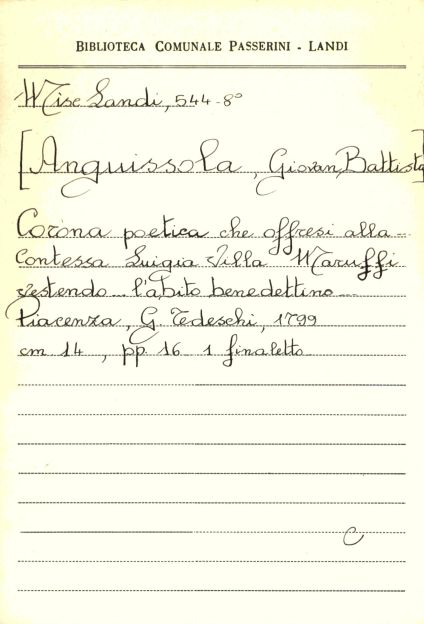 BIBLIOTECA COMUNALE PASSERINI - LANDI
Misc Landi, 544-8°
[Anguissola, Giovan Battista]
Corona poetica che offresi alla ...
Contessa Luigia Villa Maruffi
vestendo ... l'abito benedettino ...
Piacenza, G. Tedeschi, 1799
cm 14, pp. 16 1 finaletto
C